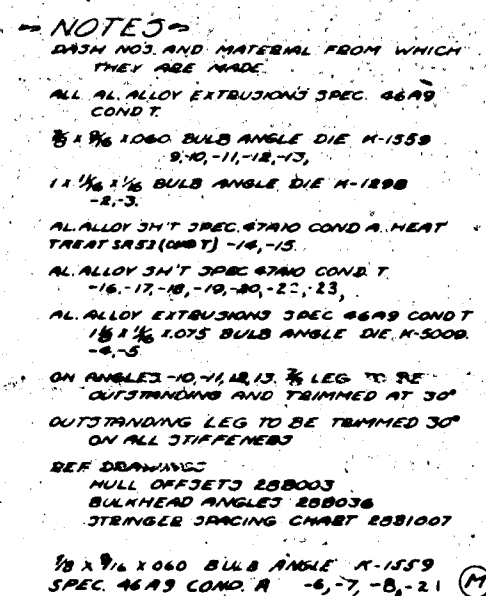 NOTES
DASH NOS. AND MATERIAL FROM WHICH
THEY ARE MADE.
ALL AL. ALLOY EXTRUSIONS SPEC. 46A9
COND T.
7/8 X 9/16 X.060 BULB ANGLE DIE K-1559
9,-10,-11,-12,-13,
BULB ANGLE DIE K-1298
-2,-3.
AL. ALLOY SH'T SPEC. 47A10 COND A. HEAT
TREAT SR53 (COND T) -14,-15.
AL. ALLOY SH'T SPEC 47A10 COND. T.
-16.-17,-18,-19,-20,-22,-23,
AL. ALLOY EXTRUSIONS SPEC 46A9 COND T
X.075 BULB ANGLE DIE K-5009.
-4,-5
ON ANGLES -10,-11,12,13. 7/8 LEG TO BE
OUTSTANDING AND TRIMMED AT 30°
OUTSTANDING LEG TO BE TRIMMED 30°
ON ALL STIFFENERS
REF DRAWINGS
HULL OFFSETS 28B003
BULKHEAD ANGLES 28B036
STRINGER SPACING CHART 28B1007
7/8 X 9/16 X 060 BULB ANGLE K-1559
SPEC. 46A9 COND. A -6,-7,-8,-21 M